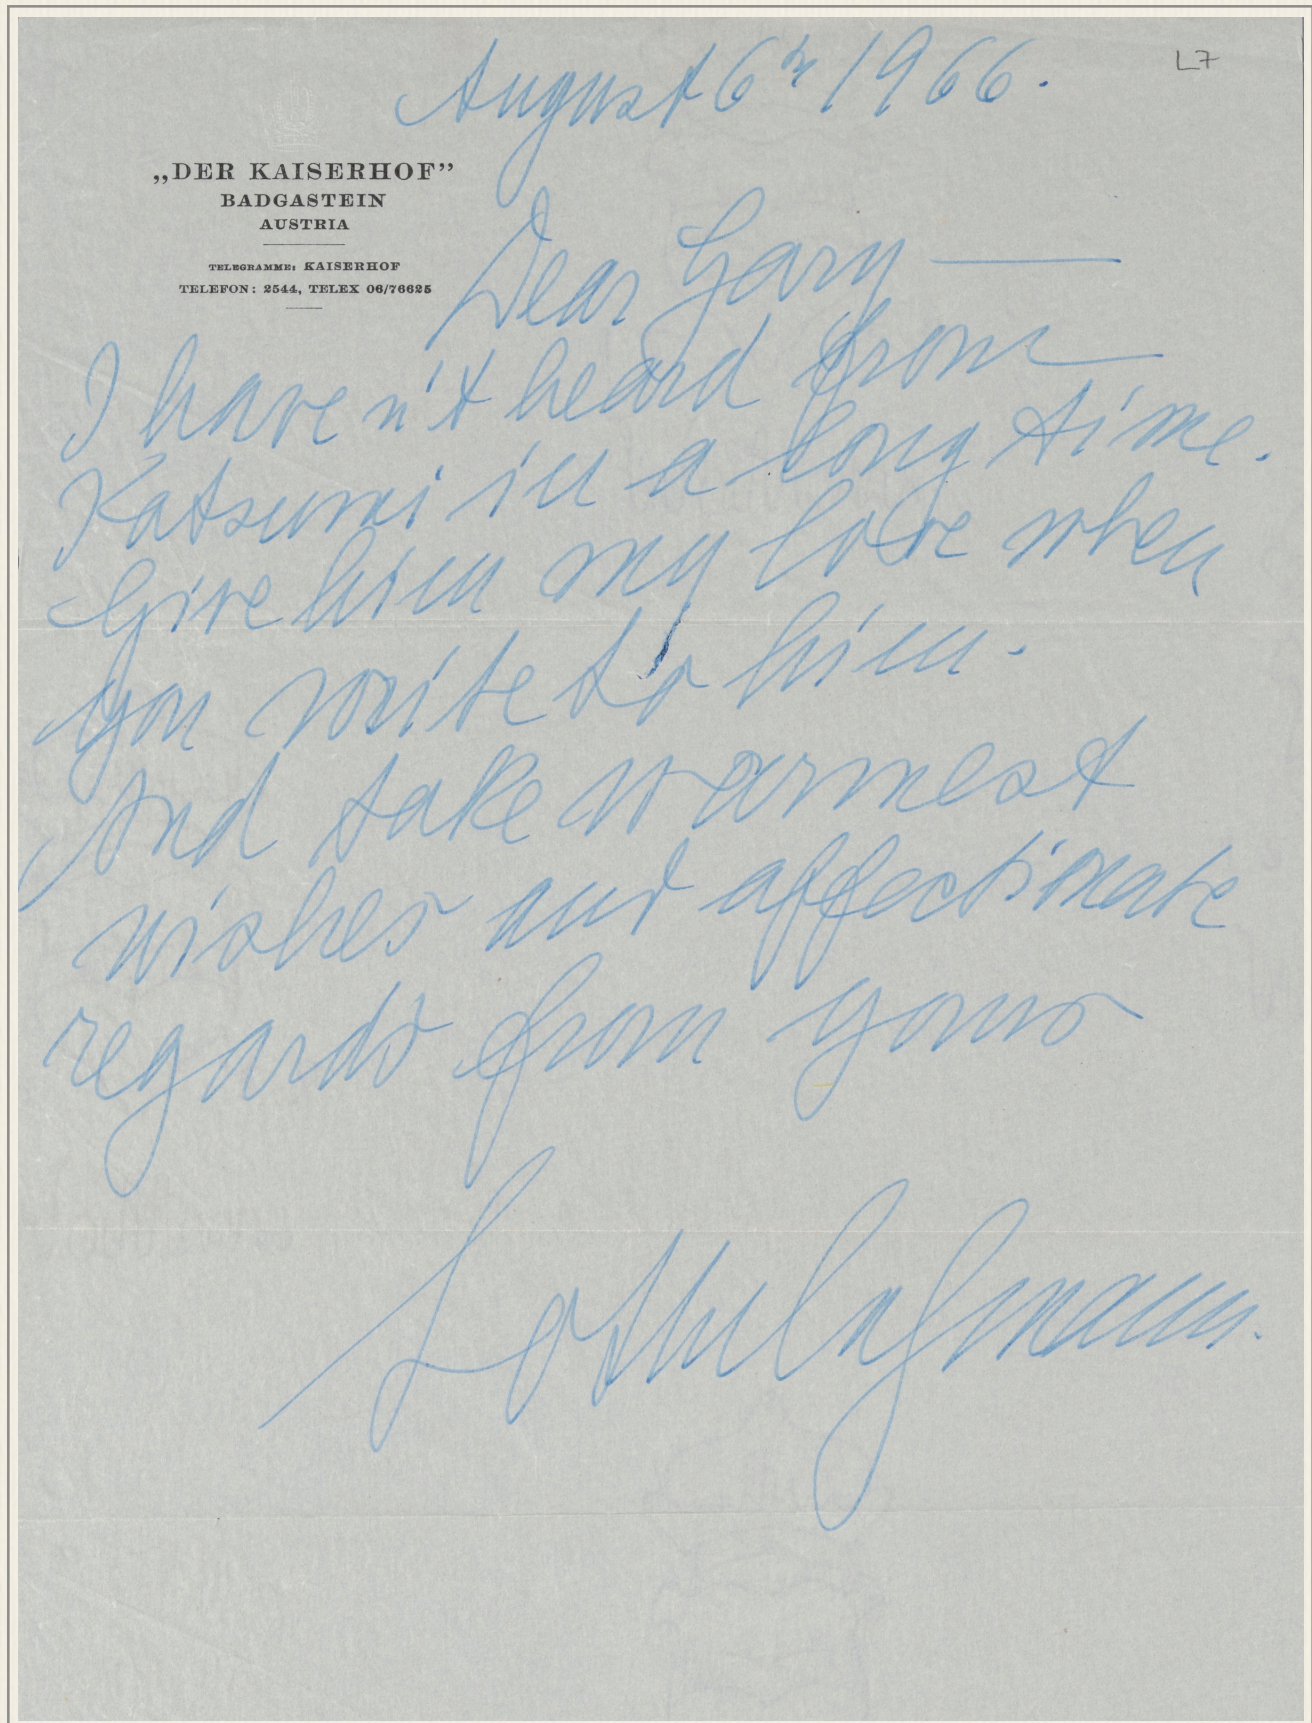 August 6th 1966.
L7
„DER KAISERHOF”
BADGASTEIN
AUSTRIA
TELEGRAMME: KAISERHOF
TELEFON: 2544, TELEX 06/76625
Dear Gary —
I haven't heard from
Katsumi in a long time.
Give him my love when
you write to him.
And take warmest
wishes and affectionate
regards from yours
Lotte Lehmann.